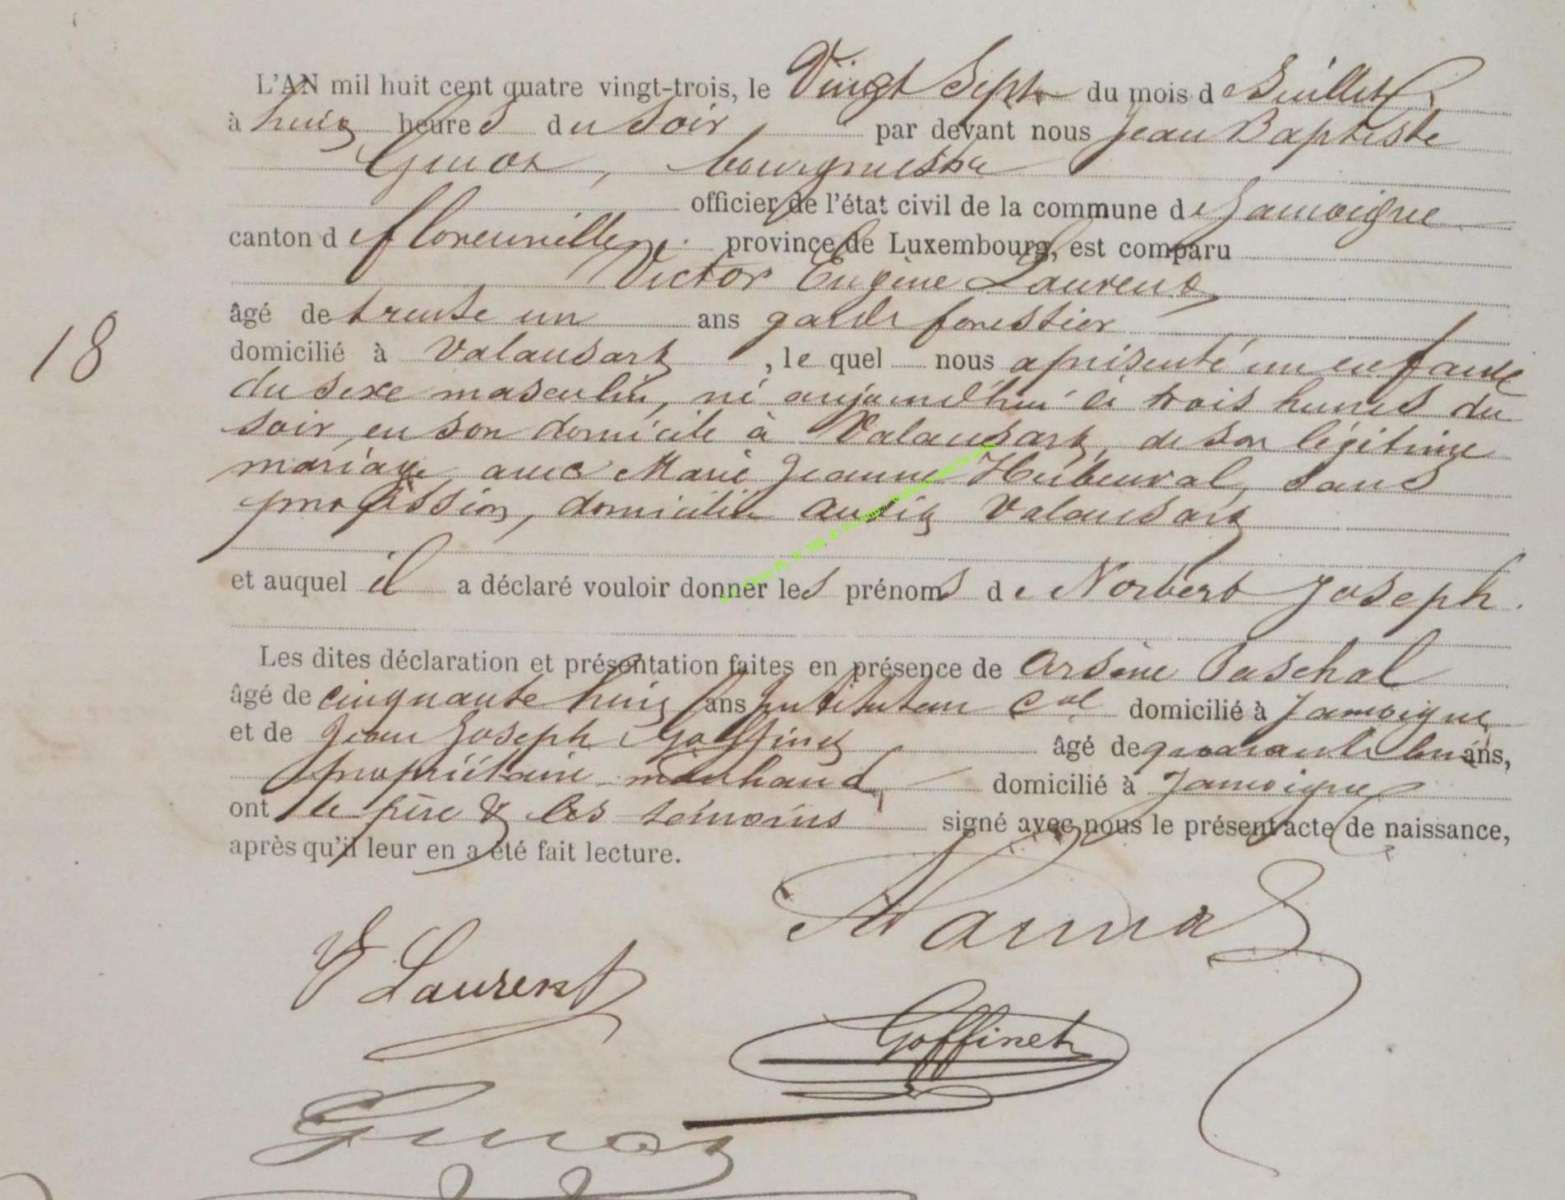 L'AN mil huit cent quatre vingt-trois, le Vingt Sept du mois de Juillet
à huit heures du soir, par devant nous Jean Baptiste
Ginot, bourgmestre
officier de l'état civil de la commune de Jamoigne
canton de florenville province de Luxembourg, est comparu
Victor Eugène Laurent,
âgé de trente un ans garde forestier
18
domicilié à Valansart, le quel nous a présenté un enfant
du sexe masculin, né aujourd'hui à trois heures du
soir, en son domicile à Valansart, de son légitime
mariage avec Marie Jeanne, sans
profession, domiciliée audit Valansart
et auquel il a déclaré vouloir donner les prénoms de Norbert Joseph.
Les dites déclaration et présentation faites en présence de Arsène Paschal
âgé de cinquante huit ans Instituteur cal domicilié à Jamoigne
et de Jean Joseph Goffinet âgé de quarante ans,
propriétaire marchand, domicilié à Jamoigne
ont le père & les témoins signé avec nous le présent acte de naissance,
après qu'il leur en a été fait lecture.
V Laurent
Goffinet
Ginot